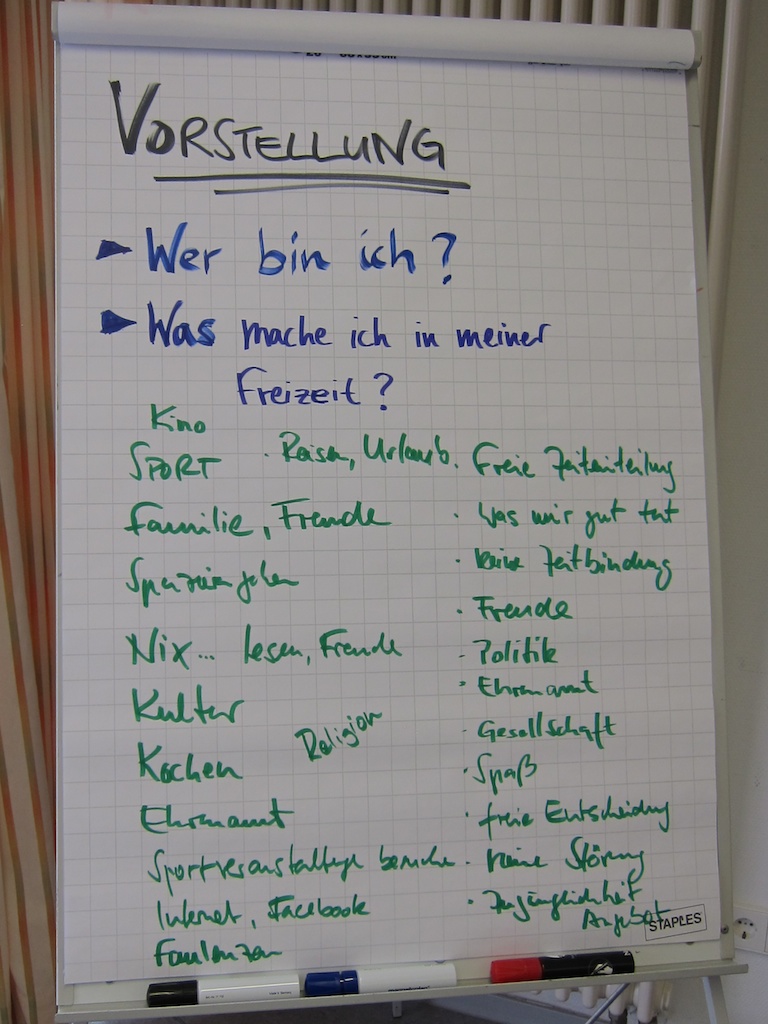 VORSTELLUNG
► Wer bin ich?
► Was mache ich in meiner
Freizeit?
Kino
SPORT
Familie, Freunde
Spazieren gehen
Nix... lesen, Freunde
Kultur
Kochen
Ehrenamt
Sportveranstaltungen besuchen
Internet, Facebook
Faulenzen
· Reisen, Urlaub
Religion
· Freie Zeiteinteilung
· Was mir gut tut
· keine Zeitbindung
· Freude
· Politik
· Ehrenamt
· Gesellschaft
· Spaß
· freie Entscheidung
· keine Störung
· Zugänglichkeit
Angebot
STAPLES